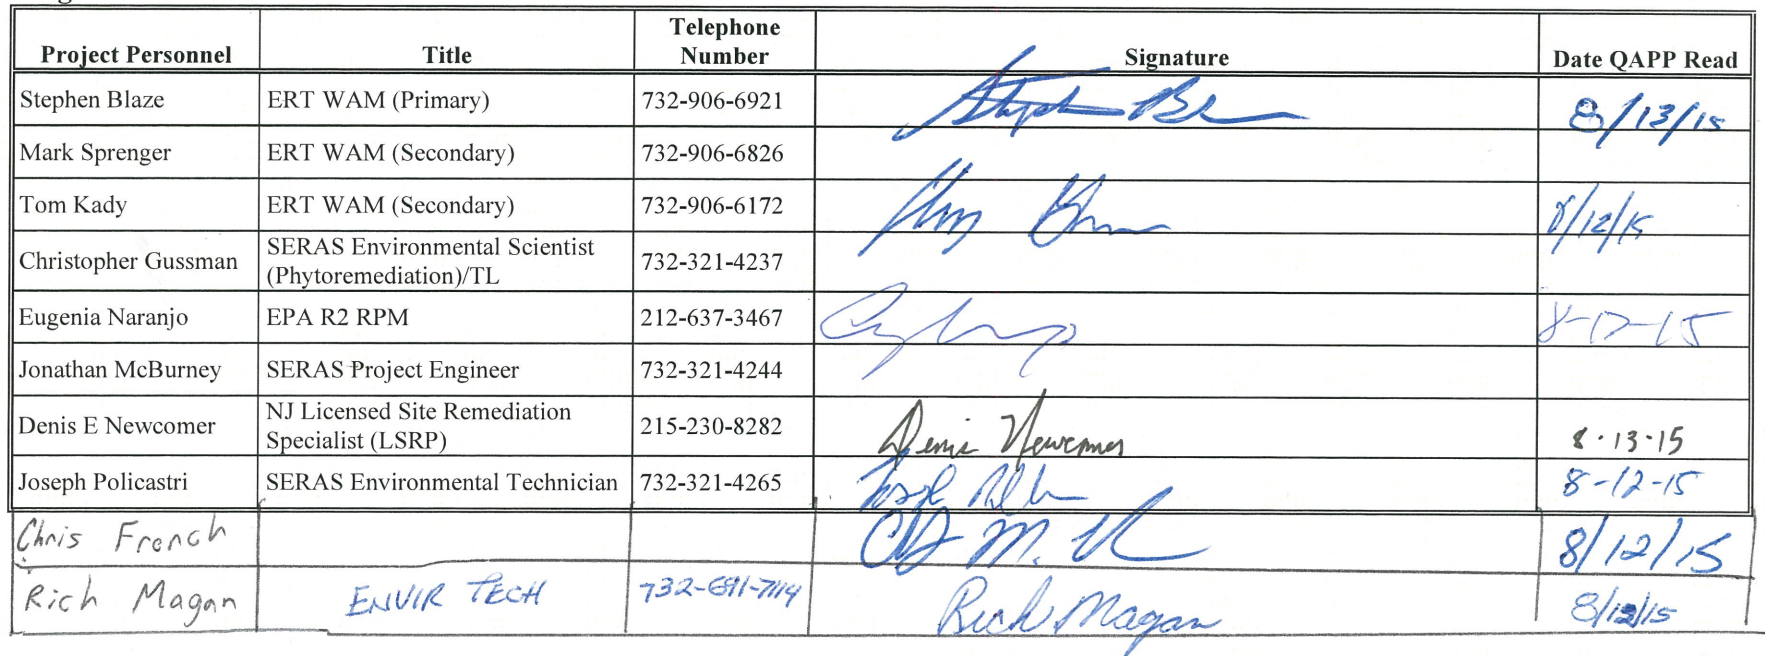 Project Personnel Title Telephone Number Signature Date QAPP Read
Stephen Blaze ERT WAM (Primary) 732-906-6921 8/13/15
Mark Sprenger ERT WAM (Secondary) 732-906-6826
Tom Kady ERT WAM (Secondary) 732-906-6172 8/12/15
Christopher Gussman SERAS Environmental Scientist (Phytoremediation)/TL 732-321-4237
Eugenia Naranjo EPA R2 RPM 212-637-3467
Jonathan McBurney SERAS Project Engineer 732-321-4244
Denis E Newcomer NJ Licensed Site Remediation Specialist (LSRP) 215-230-8282 Denis Newcomer 8·13·15
Joseph Policastri SERAS Environmental Technician 732-321-4265 8-12-15
Chris French 8/12/15
Rich Magan ENVIR TECH Rich Magan 8/12/15